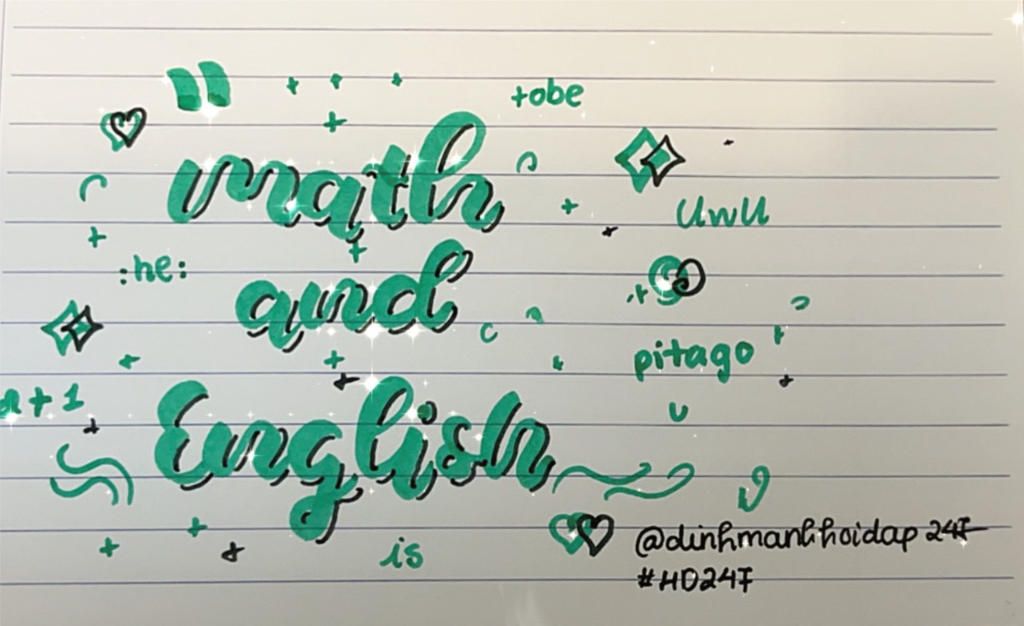 "
tobe
math
UwU
:he:
and
pitago
x + 1
English
is
@dinhmanhhoidap247
#HD247